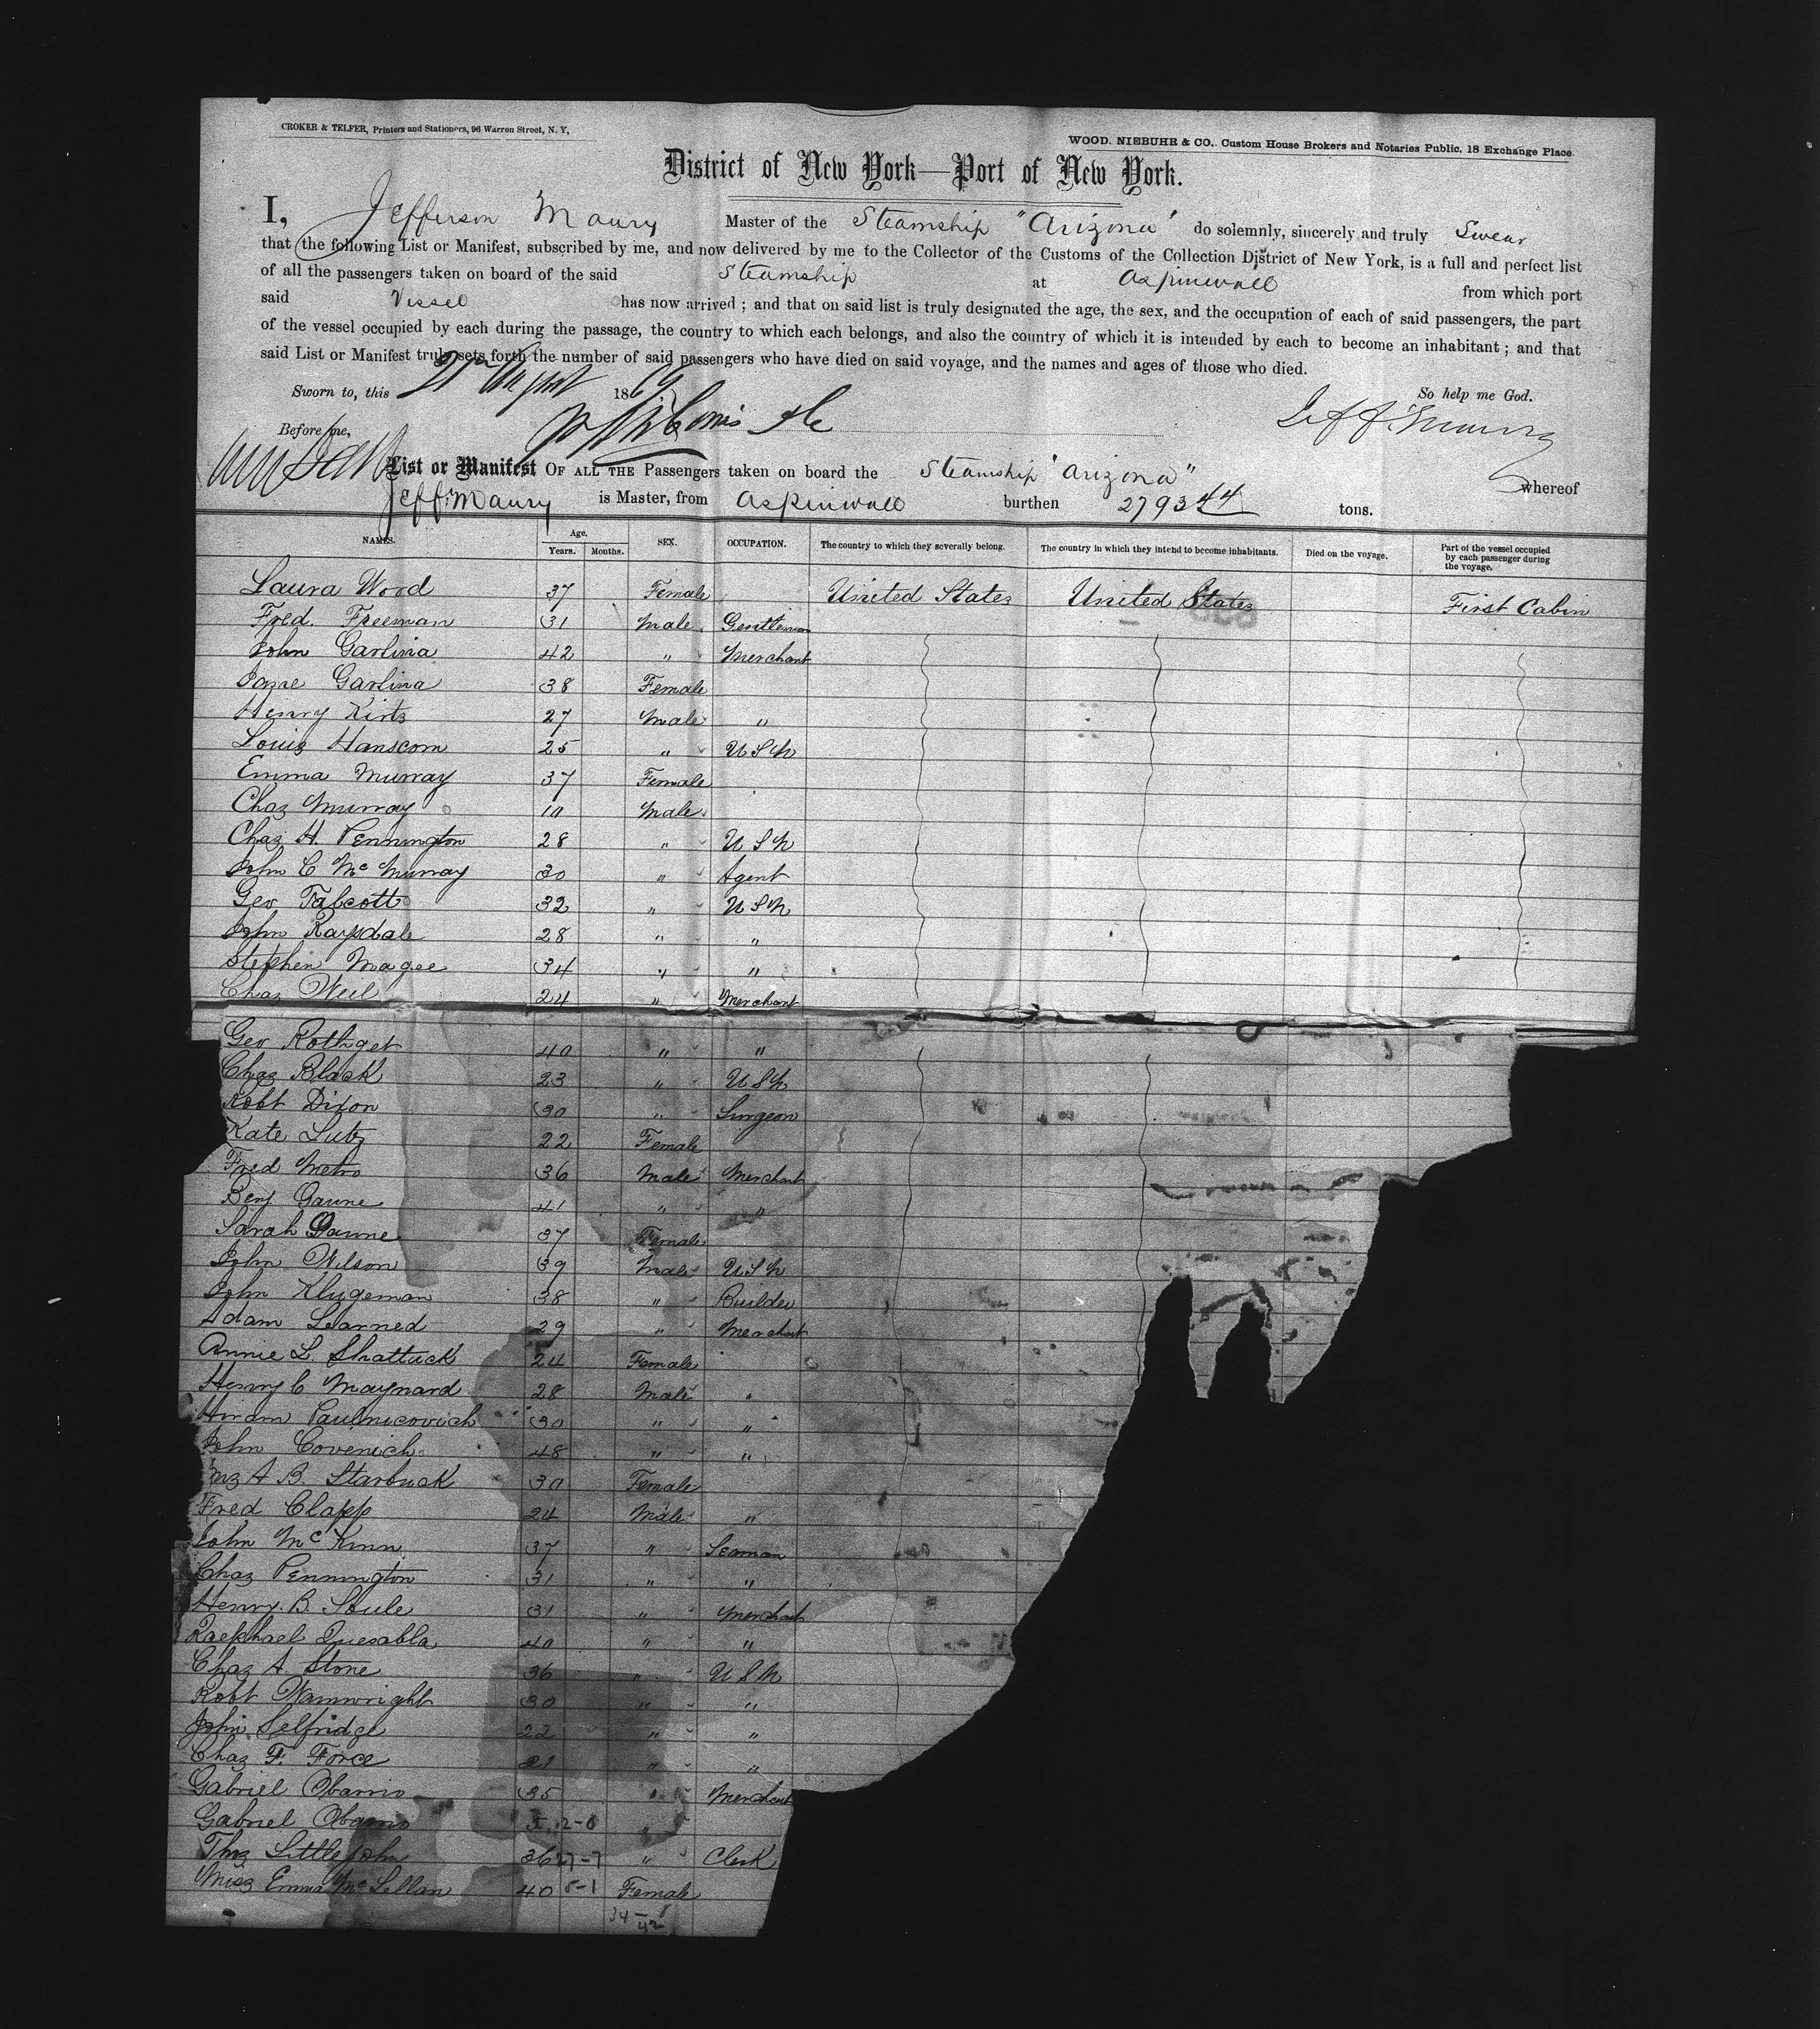 CROKER & TELFER, Printers and Stationers, 96 Warren Street, N. Y,
WOOD. NIEBUHR & CO., Custom House Brokers and Notaries Public, 18 Exchange Place.
District of New York—Port of New York.
I, Jefferson Maury Master of the Steamship "Arizona" do solemnly, sincerely and truly Swear
that the following List or Manifest, subscribed by me, and now delivered by me to the Collector of the Customs of the Collection District of New York, is a full and perfect list
of all the passengers taken on board of the said Steamship at Aspinwall from which port
said Vessel has now arrived; and that on said list is truly designated the age, the sex, and the occupation of each of said passengers, the part
of the vessel occupied by each during the passage, the country to which each belongs, and also the country of which it is intended by each to become an inhabitant; and that
said List or Manifest truly sets forth the number of said passengers who have died on said voyage, and the names and ages of those who died.
Sworn to, this 21st August 1869 So help me God.
Before me, Jeff. Maury
List or Manifest OF ALL THE Passengers taken on board the Steamship "Arizona" whereof
Jeff. Maury is Master, from Aspinwall burthen 2793 44 tons.
NAMES. Age. Years. Months. SEX. OCCUPATION. The country to which they severally belong. The country in which they intend to become inhabitants. Died on the voyage. Part of the vessel occupied by each passenger during the voyage.
Laura Wood 37 Female United States United States First Cabin
Fred. Freeman 31 Male Gentleman
John Garlina 42 " Merchant
Jane Garlina 38 Female
Henry Kirtz 27 Male "
Louis Hanscom 25 " U S N
Emma Murray 37 Female
Chas Murray 10 Male
Chas H. Pennington 28 " U S N
John C McMurray 30 " Agent
Geo Talcott 32 " U S N
John Raysdale 28 " "
Stephen Magee 34 " "
Chas Weil 24 " Merchant
Geo Rothget 40 " "
Chas Black 23 " U S N
Robt Dixon 30 " Surgeon
Kate Lutz 22 Female
Fred Metro 36 Male Merchant
Benj Gaune 41 " "
Sarah Gaune 37 Female
John Wilson 39 Male U S N
John Klugeman 38 " Builder
Adam Learned 29 " Merchant
Annie L. Shattuck 24 Female
Henry C Maynard 28 Male "
Hiram Paulnicovich 30 " "
John Covenich 48 " "
Mrs A B. Starbuck 30 Female
Fred Clapp 24 Male "
John McKinn 37 " Seaman
Chas Pennington 31 " "
Henry B. Soule 31 " Merchant
Raephael Quesabla 40 " "
Chas A. Stone 36 " U S N
Robt Wainwright 30 " "
John Selfridge 22 " "
Chas F. Force 21 " "
Gabriel Obarrio 35 " Merchant
Gabriel Obarrio 5 12-0 "
Thos Littlejohn 36 27-7 " Clerk
Miss Emma McLellan 40 5-1 Female
34